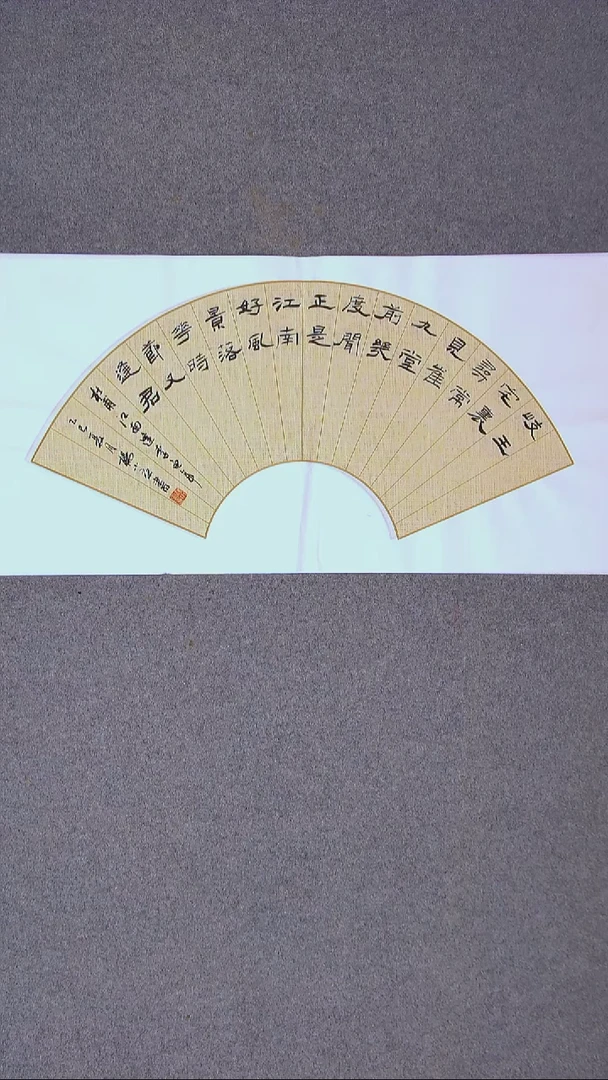 岐王
宅裏
尋常
見崔
九堂
前幾
度聞
正是
江南
好風
景落
華時
節又
逢君
杜甫江南逢李龜年
乙巳 月 書